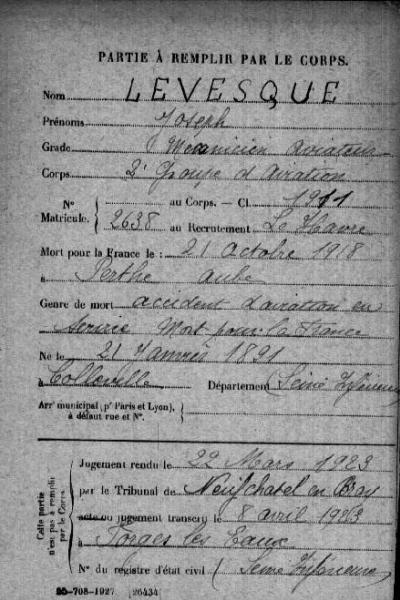 PARTIE À REMPLIR PAR LE CORPS.
Nom LEVESQUE
Prénoms Joseph
Grade Mecanicien aviateur
Corps 2e Groupe d'aviation
N° Matricule. { au Corps. — Cl. 1911
2638 au Recrutement Le Havre
Mort pour la France le : 21 Octobre 1918
à Perthe Aube
Genre de mort accident d'aviation en
service Mort pour la France
Né le 21 Janvier 1891
à Département Seine Inférieure
Arr' municipal (p' Paris et Lyon),
à défaut rue et N°.
Cette partie n'est pas à remplir par le Corps.
Jugement rendu le 22 Mars 1923
par le Tribunal de Neufchatel en Bray
acte ou jugement transcrit le 8 avril 1923
à Forges les Eaux
N° du registre d'état civil (Seine Inférieure
35-708-1927. [26434]